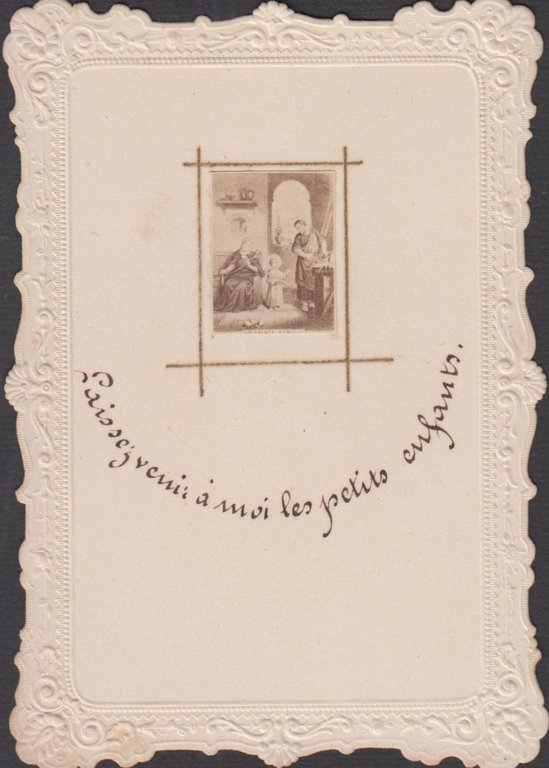 Laissez venir à moi les petits enfants.